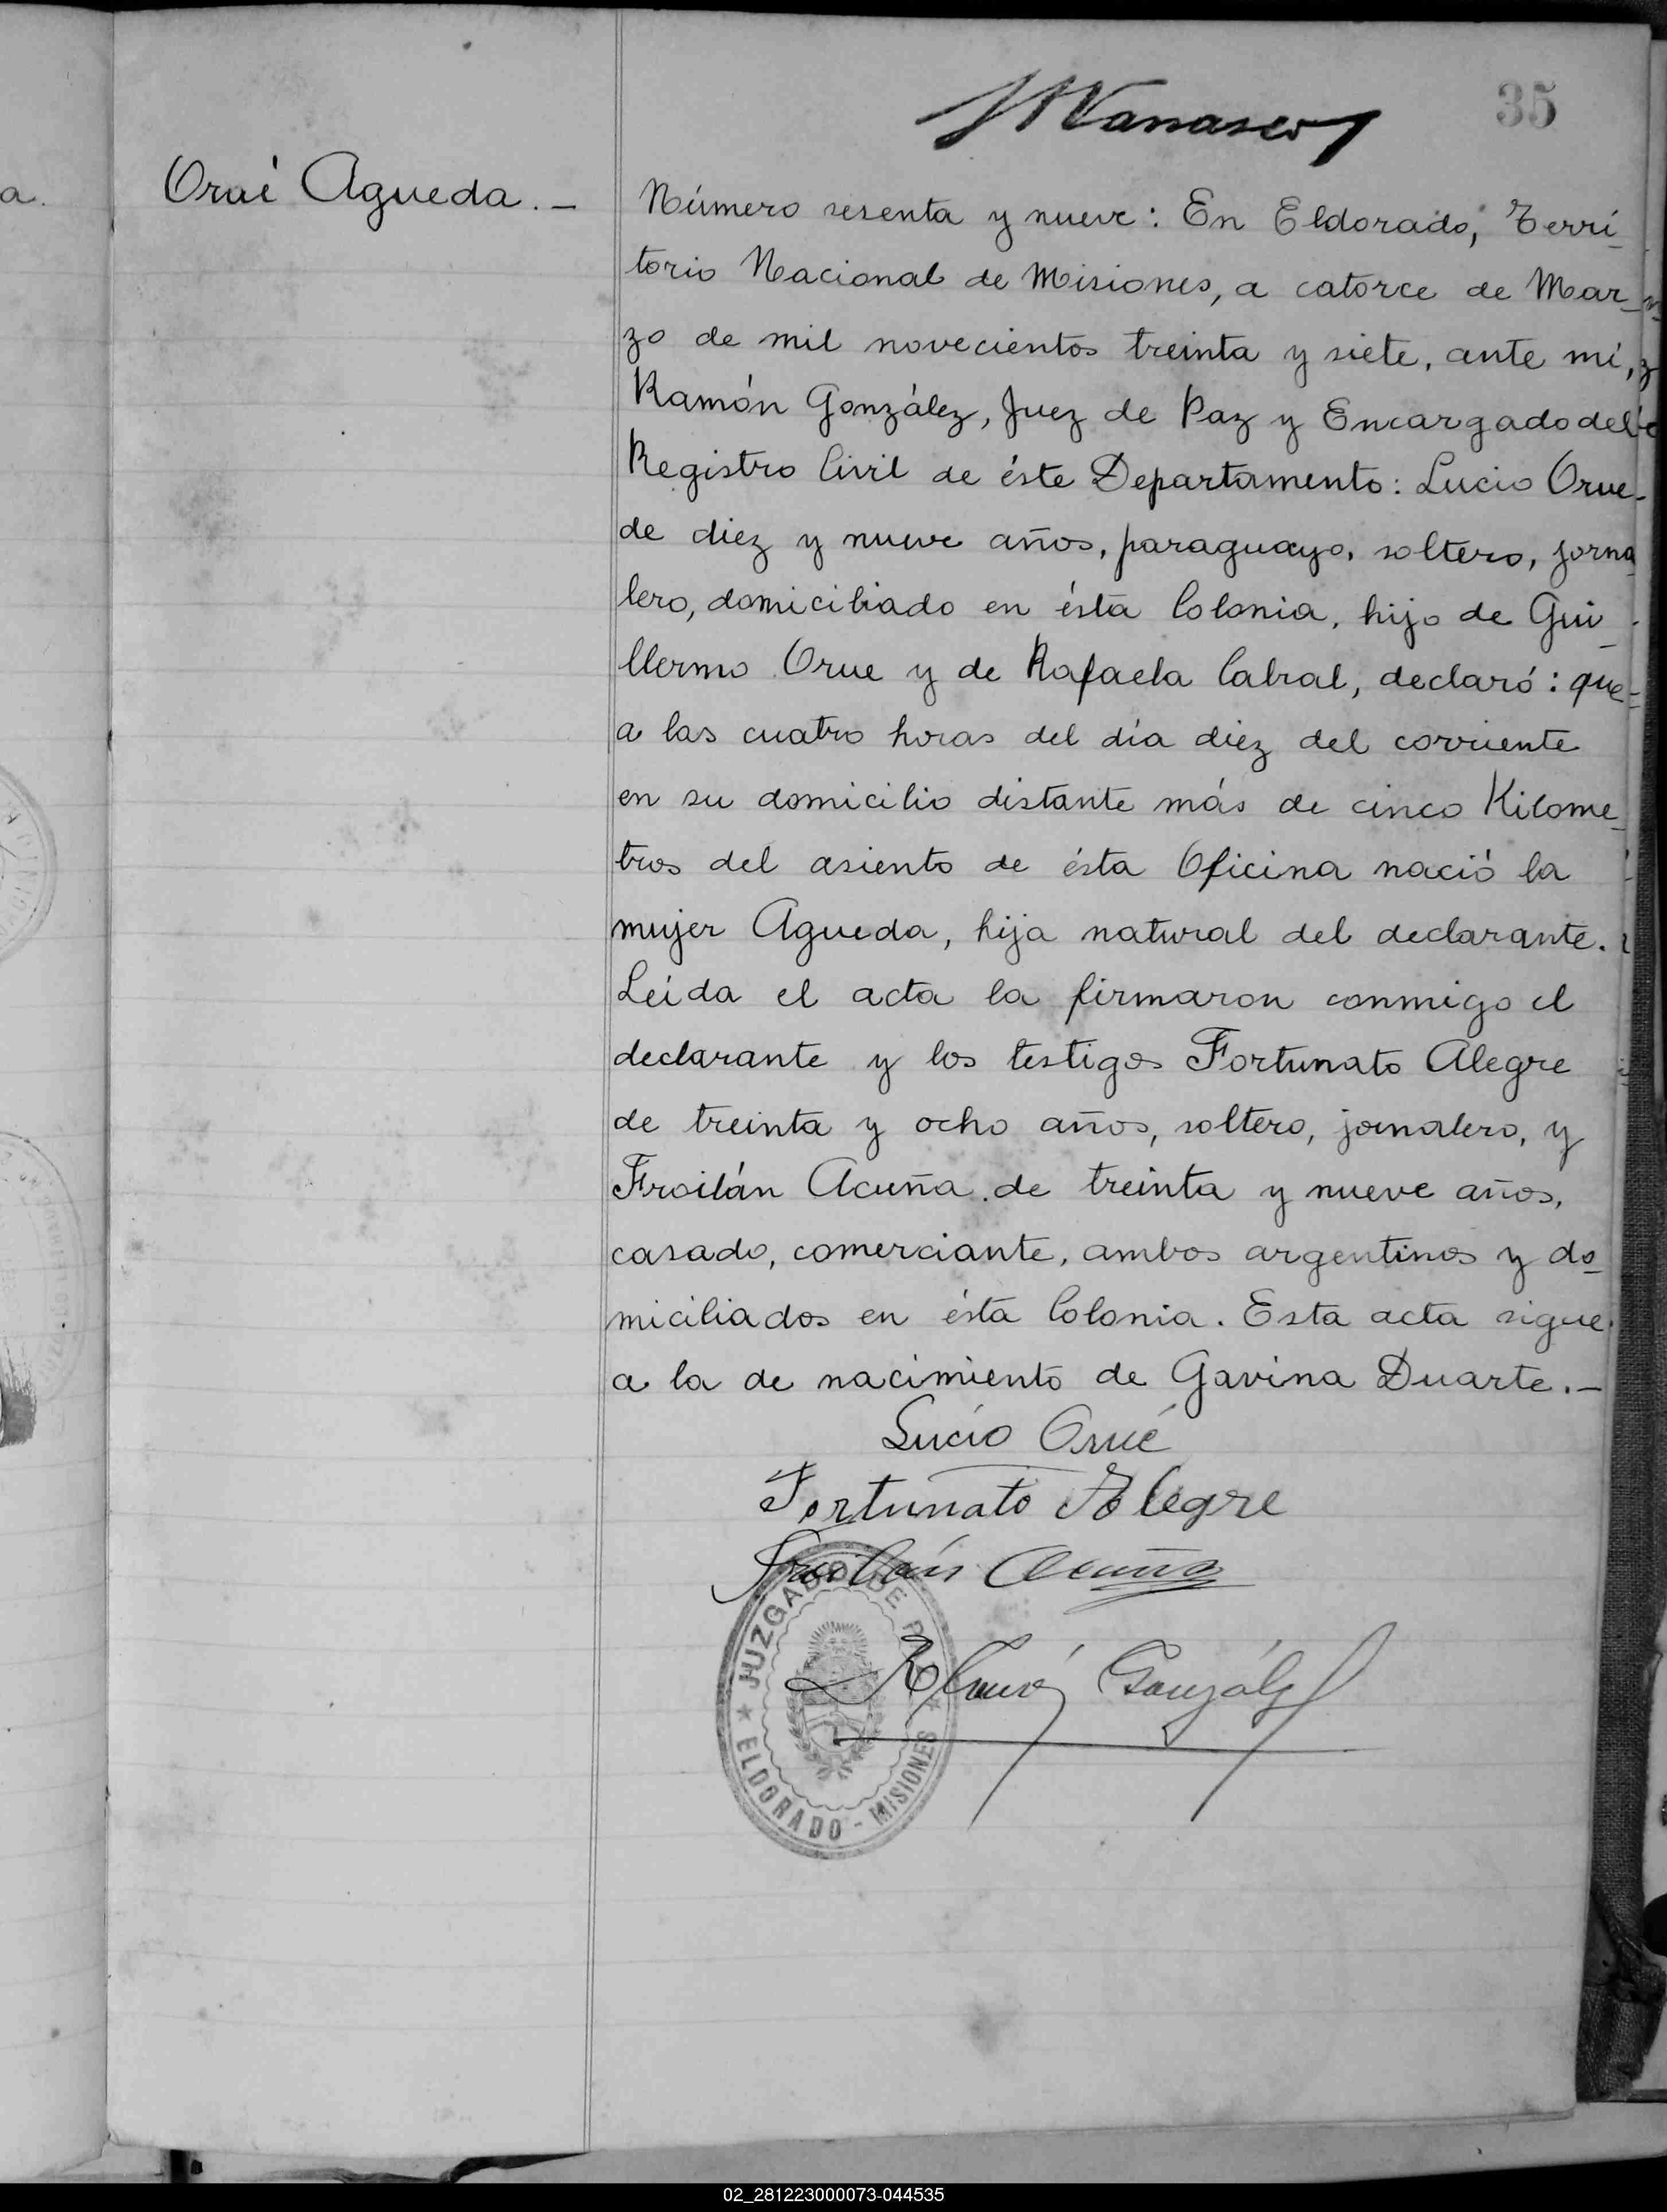 35
Orué Agueda. –
Número sesenta y nueve: En Eldorado, Terri_
torio Nacional de Misiones, a catorce de Mar_
zo de mil novecientos treinta y siete, ante mí,
Ramón González, Juez de Paz y Encargado del
Registro Civil de éste Departamento: Lucio Orue-
de diez y nueve años, paraguayo, soltero, jorna_
lero, domiciliado en ésta Colonia, hijo de Gui_
llermo Orue y de Rafaela Cabral, declaró: que-
a las cuatro horas del día diez del corriente
en su domicilio distante más de cinco Kilome_
tros del asiento de ésta Oficina nació la
mujer Agueda, hija natural del declarante.
Leída el acta la firmaron conmigo el
declarante y los testigos Fortunato Alegre
de treinta y ocho años, soltero, jornalero, y
Froilán Acuña de treinta y nueve años,
casado, comerciante, ambos argentinos y do_
miciliados en ésta Colonia. Esta acta sigue
a la de nacimiento de Gavina Duarte. –
Lucio Orué
Fortunato Alegre
Froilán Acuña
Ramón González
JUZGADO DE P
ELDORADO - MISIONES
02_281223000073-044535